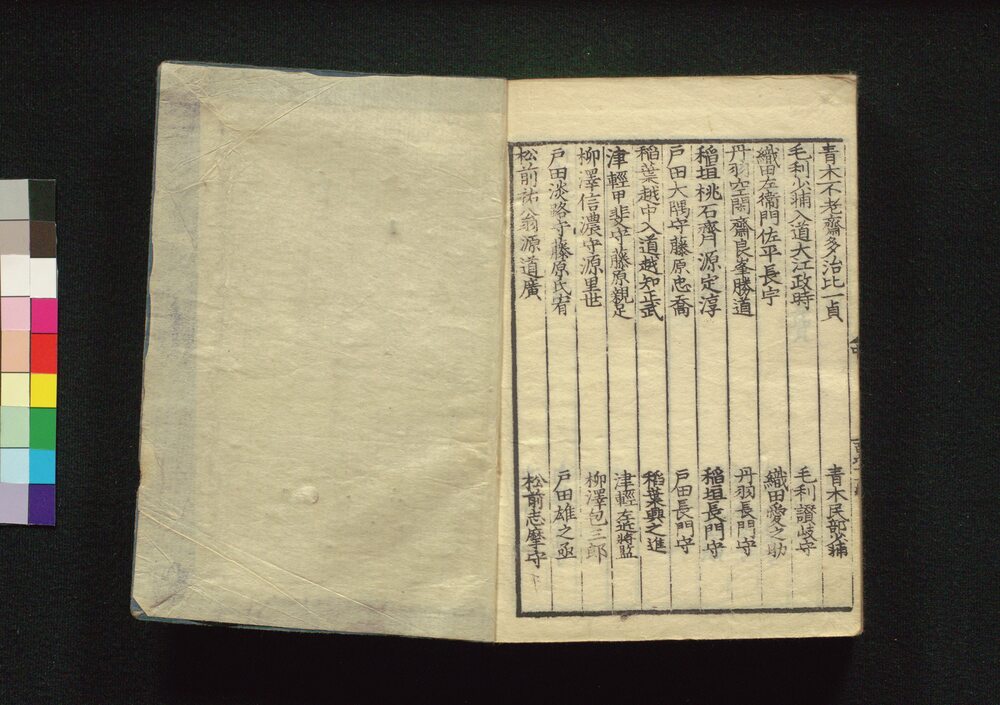 青木不老齋多治比一貞　青木民部少輔
毛利少輔入道大江政時　毛利讃岐守
織田左衞門佐平長宇　織田愛之助
丹羽空閑齋良峯勝道　丹羽長門守
稲垣桃石齊源定淳　稲垣長門守
戸田大隅守藤原忠喬　戸田長門守
稲葉越中入道越知正武　稲葉興之進
津輕甲斐守藤原親足　津輕左近將監
柳澤信濃守源里世　柳澤包三郎
戸田淡路守藤原氏宥　戸田雄之丞
松前祐翁源道廣　松前志摩守